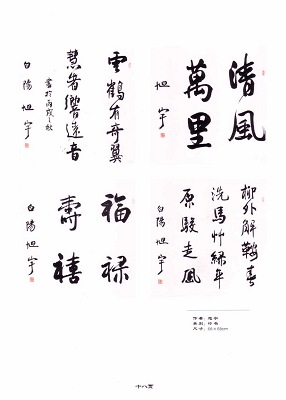 清風
萬里
旭宇
雲鶴有奇翼
慧者響遠音
書於丙戌之秋
白陽 旭宇
柳外解鞍春
洗馬艸綠平
原駿走風
旭宇
福祿
壽禧
白陽 旭宇
作者：旭宇
类别：行书
尺寸：68×68cm
十八页